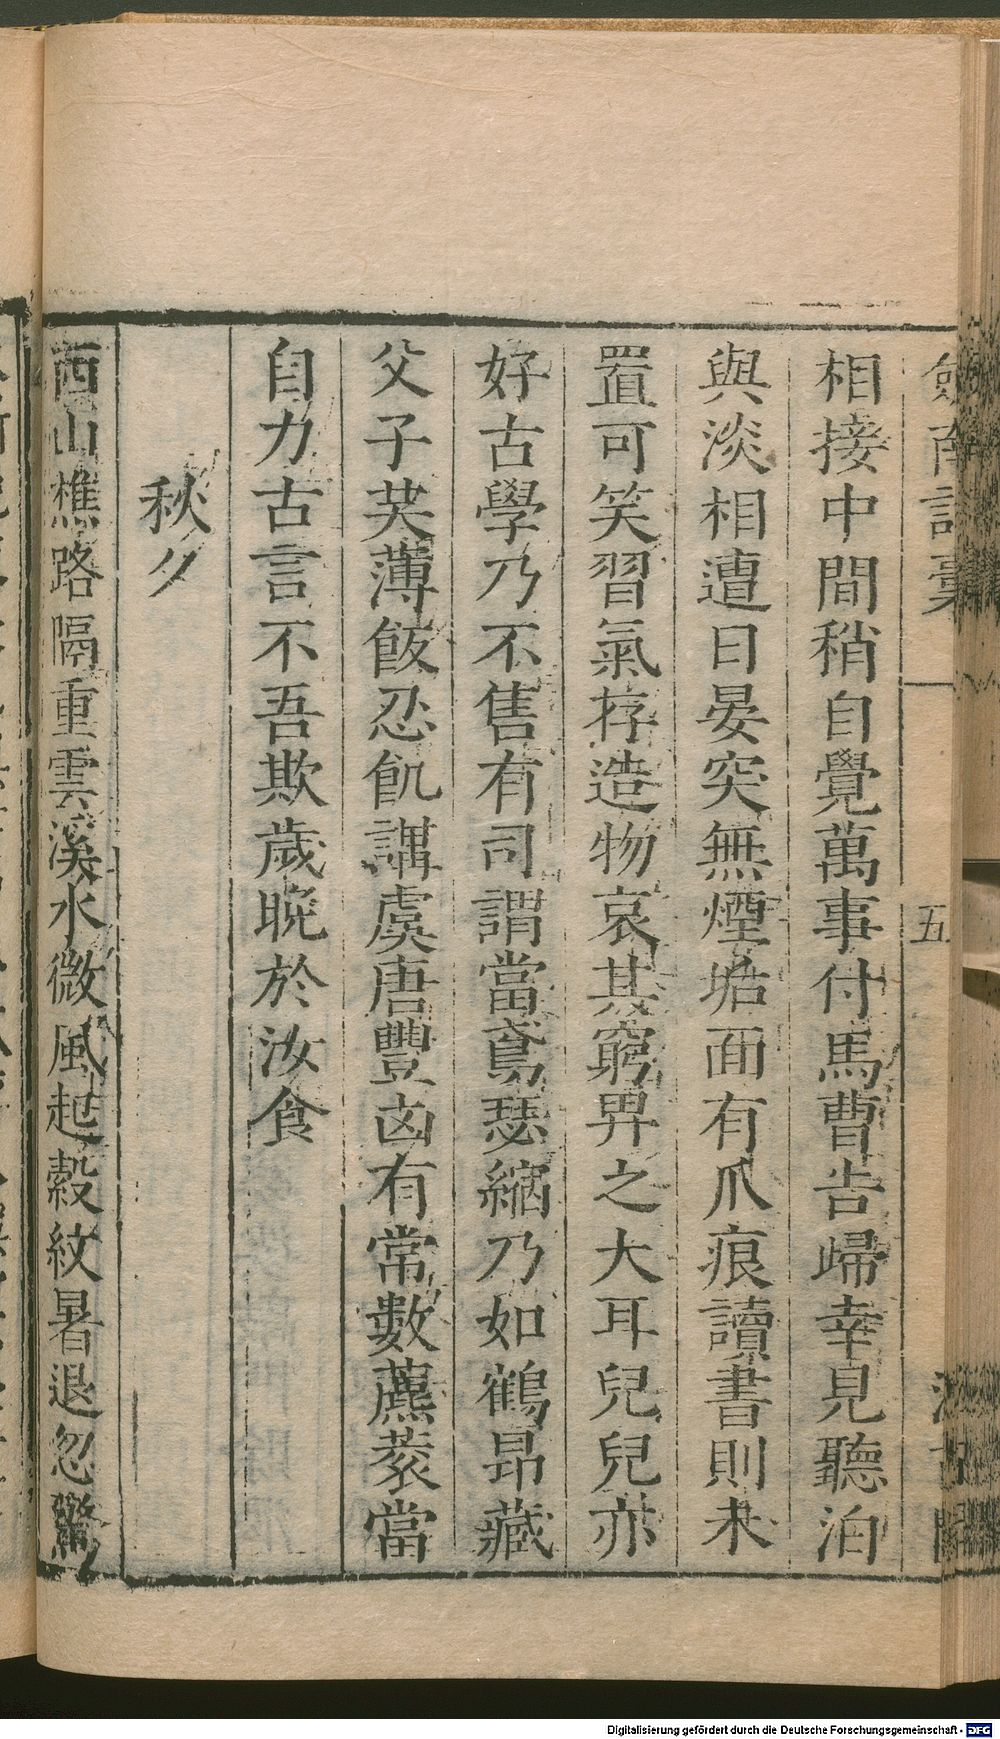 劎南詩稾
五
相接中間稍自覺萬事付馬曹告歸幸見聽泊
與淡相遭日晏突無煙垢面有爪痕讀書則未
置可笑習氣存造物哀其窮畀之大耳兒兒亦
好古學乃不售有司謂當鳶瑟縮乃如鶴昂藏
父子芙薄飯忍飢講虞唐豐凶有常數藨蔉當
自力古言不吾欺歲晚於汝食
秋夕
西山樵路隔重雲溪水微風起縠紋暑退忽驚
Digitalisierung gefördert durch die Deutsche Forschungsgemeinschaft - DFG